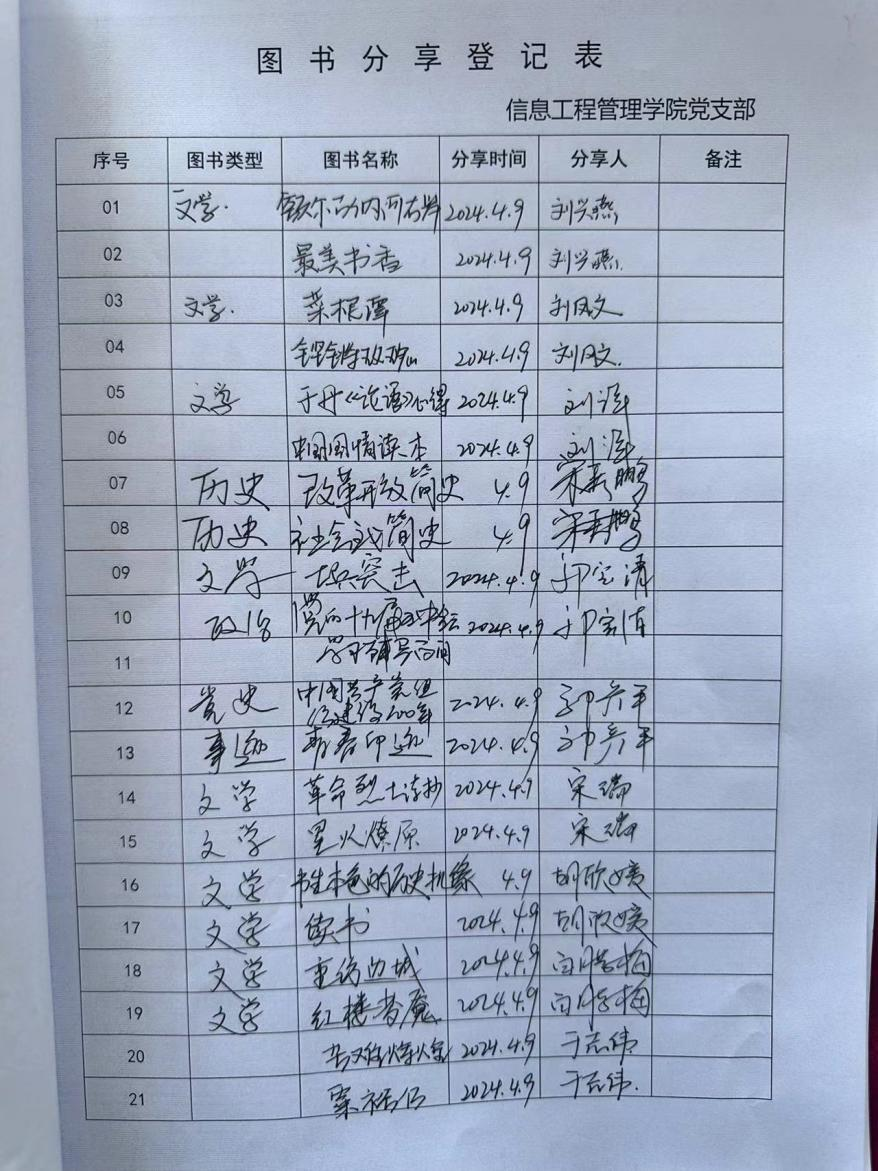 图书分享登记表
信息工程管理学院党支部
序号 图书类型 图书名称 分享时间 分享人 备注
01 文学. 额尔古纳河右岸 2024.4.9 刘兴燕
02 最美书香 2024.4.9 刘兴燕.
03 文学. 菜根谭 2024.4.9 刘凤文
04 2024.4.9 刘凤文.
05 文学 于丹《论语》心得 2024.4.9 刘
06 中国国情读本 2024.4.9 刘
07 历史 改革开放简史 4.9 宋新鹏
08 历史 社会主义简史 4.9 宋新鹏
09 文学 士兵突击 2024.4.9 郭宝清
10 政治 党的十九届五中全会 2024.4.9 郭宝清
11 学习辅导百问
12 党史 中国共产党组 2024.4.9
织建设100年
13 事迹 青春印迹 2024.4.9
14 文学 革命烈士诗抄 2024.4.9 宋瑞
15 文学 星火燎原 2024.4.9 宋瑞
16 文学 书生本色的历史机缘 4.9 胡欣
17 文学 读书 2024.4.9 胡欣
18 文学 重编边城 2024.4.9 白
19 文学 红楼梦魇 2024.4.9 白
20 2024.4.9 于志伟
21 2024.4.9 于志伟.